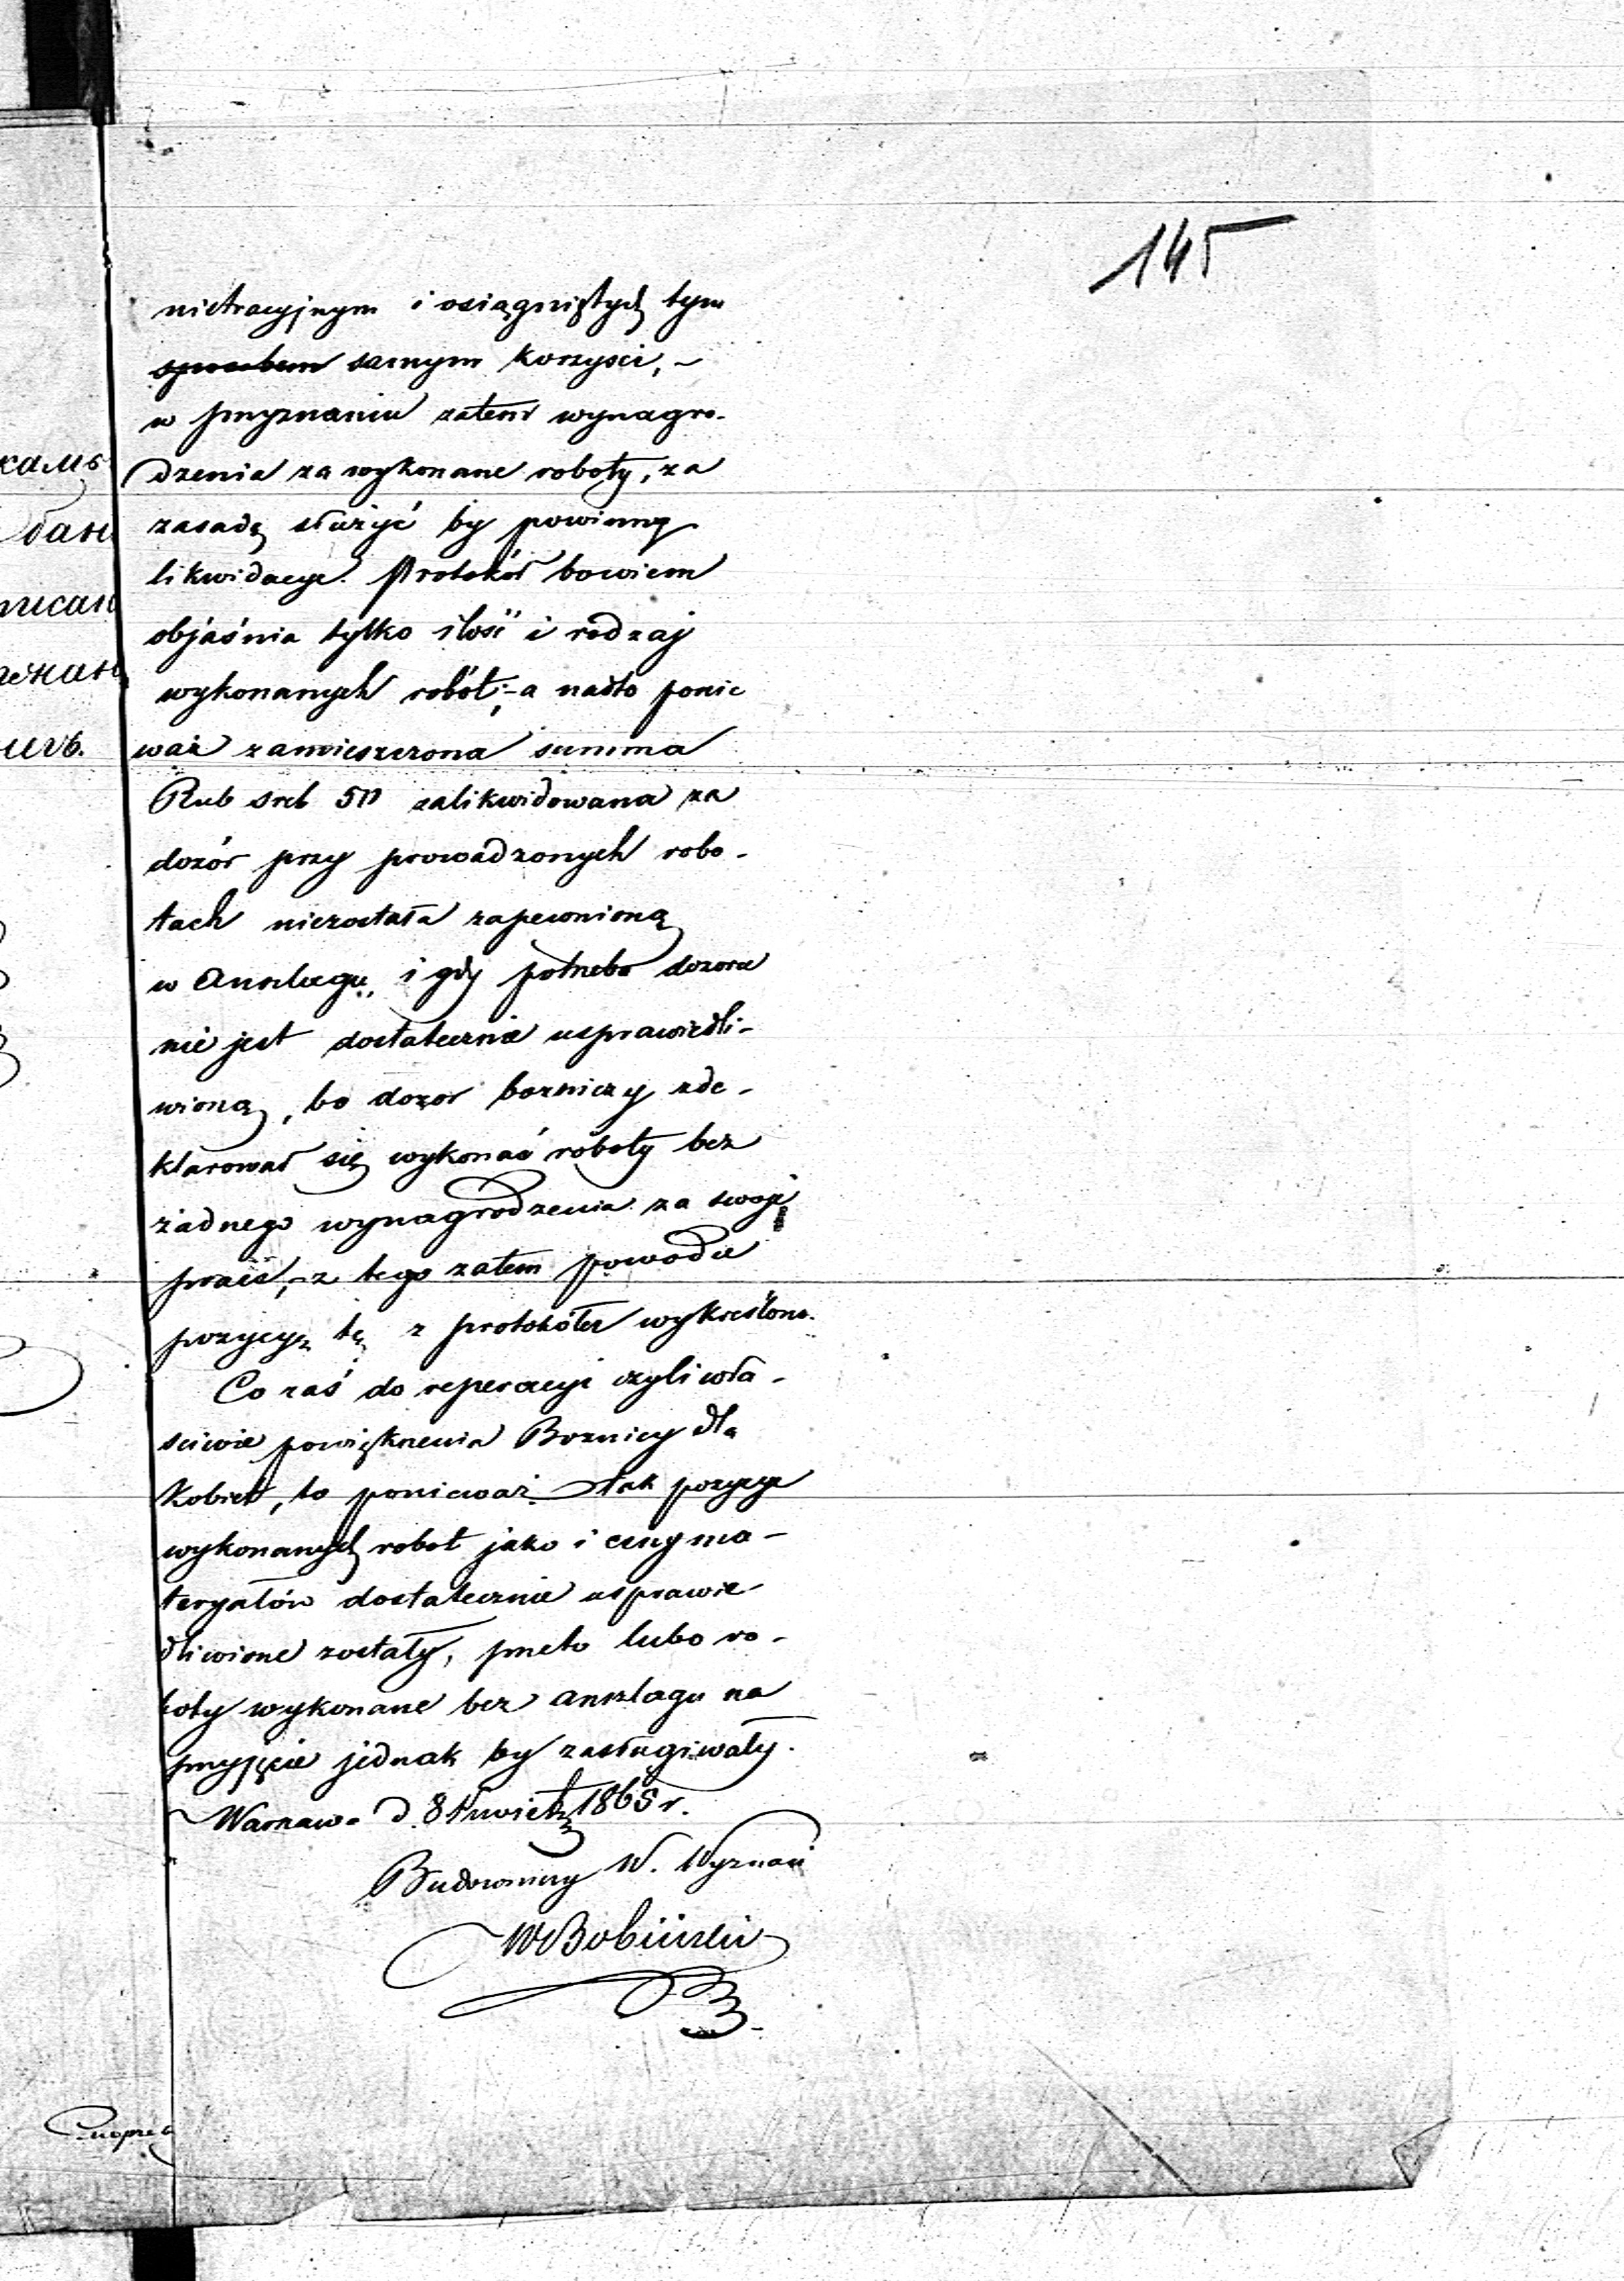 145
nistracyjnym i osiągniętych tym
sposobem samym korzyści, –
w przyznaniu zatem wynagro-
dzenia za wykonane roboty, za
zasadę służyć by powinny
likwidacye. Protokół bowiem
objaśnia tylko ilość i rodzaj
wykonanych robót; – a nadto ponie
waż zamieszczona summa
Rub sreb 50 zalikwidowana za
dozór przy prowadzonych robo-
tach niezostała zapewnioną
w Anszlagu, i gdy potrzeba dozoru
nie jest dostatecznie usprawiedli-
wioną, bo dozór bożniczy zde-
klarował się wykonać roboty bez
żadnego wynagrodzenia za swoje
pracę, – z tego zatem powodu
pozycyę tę z protokółu wykreślono.
Co zaś do reperacyi czyli wła-
ściwie powiększenia Bożnicy dla
Kobiet, to ponieważ tak pozycye
wykonanych robot jako i ceny ma-
teryałów dostatecznie usprawie-
dliwione zostały, przeto lubo ro-
boty wykonane bez anszlagu na
przyjęcie jednak by zasługiwały.
Warszawa d. 8 Kwietn 1865 r.
Budowniczy W. Wyznań
W Bobiński